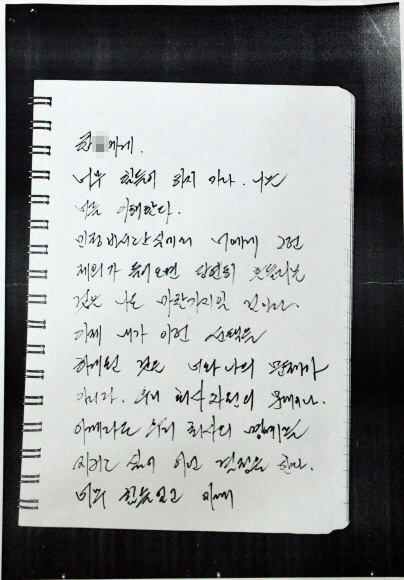 한 에게.
너무 힘들어 하지 마라. 나는
너를 이해한다.
민정비서관실에서 너에게 그런
제의가 들어오면 당연히 흔들리는
것은 나도 마찬가지일 것이다.
이제 내가 이런 선택을
하게된 것은 너와 나의 문제가
아니다. 우리 회사 차원의 문제이나.
이제라도 우리 회사의 명예를
지키고 싶어 이런 결정을 한다.
너무 힘들었고